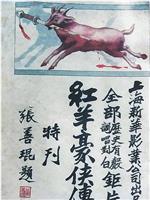 上海新華影業公司出品
全部歷史有聲
詞唱對白
鉅片
紅羊豪俠傳
特刊
張善琨題